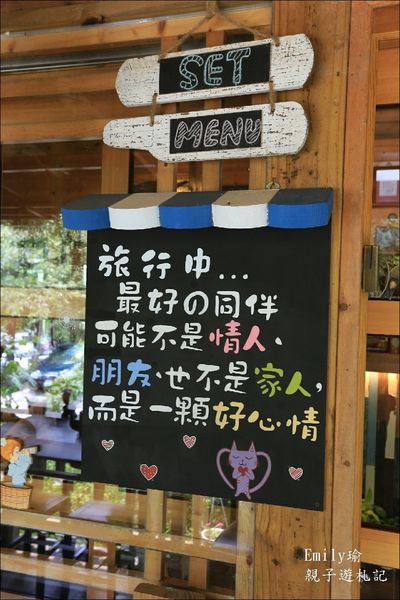 SET
MENU
旅行中...
最好の同伴
可能不是情人、
朋友、也不是家人,
而是一顆好心情
Emily瑜
親子遊札記